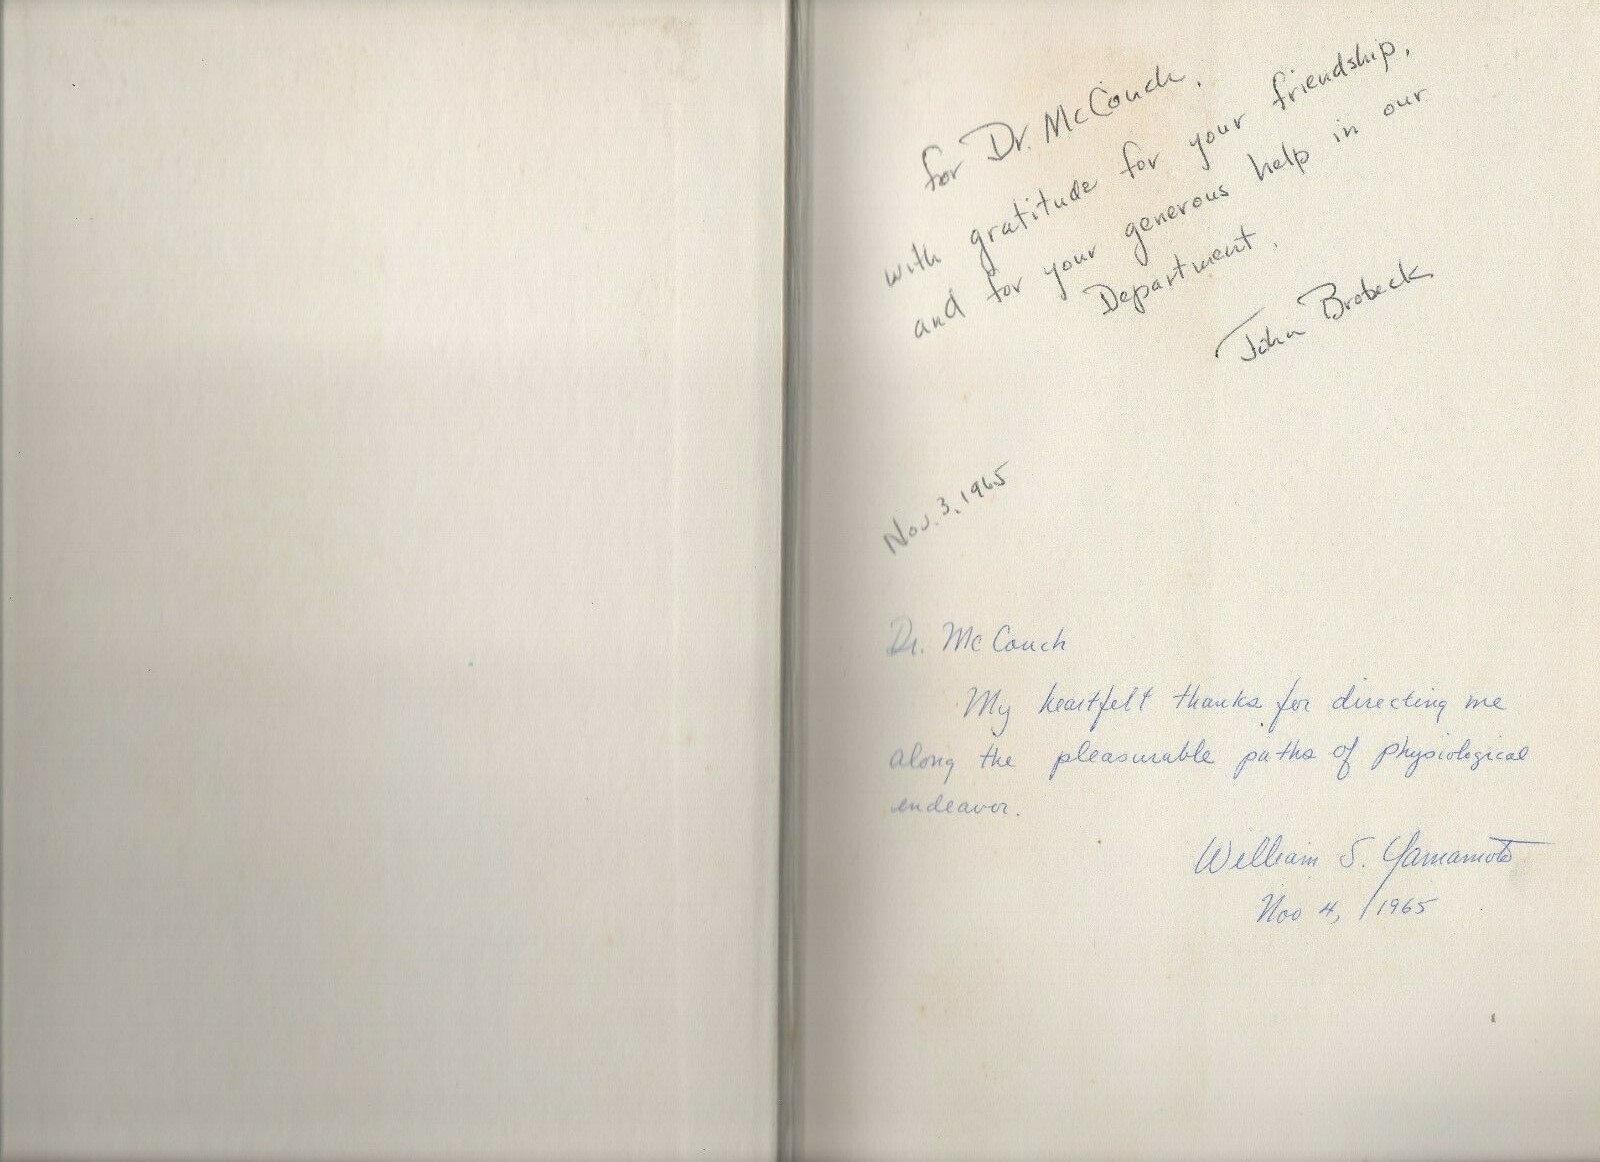 for Dr. McCouch,
with gratitude for your friendship,
and for your generous help in our
Department.
John Brobeck
Nov. 3, 1965
Dr. McCouch
My heartfelt thanks for directing me
along the pleasurable paths of physiological
endeavor.
William S. Yamamoto
Nov 4, 1965